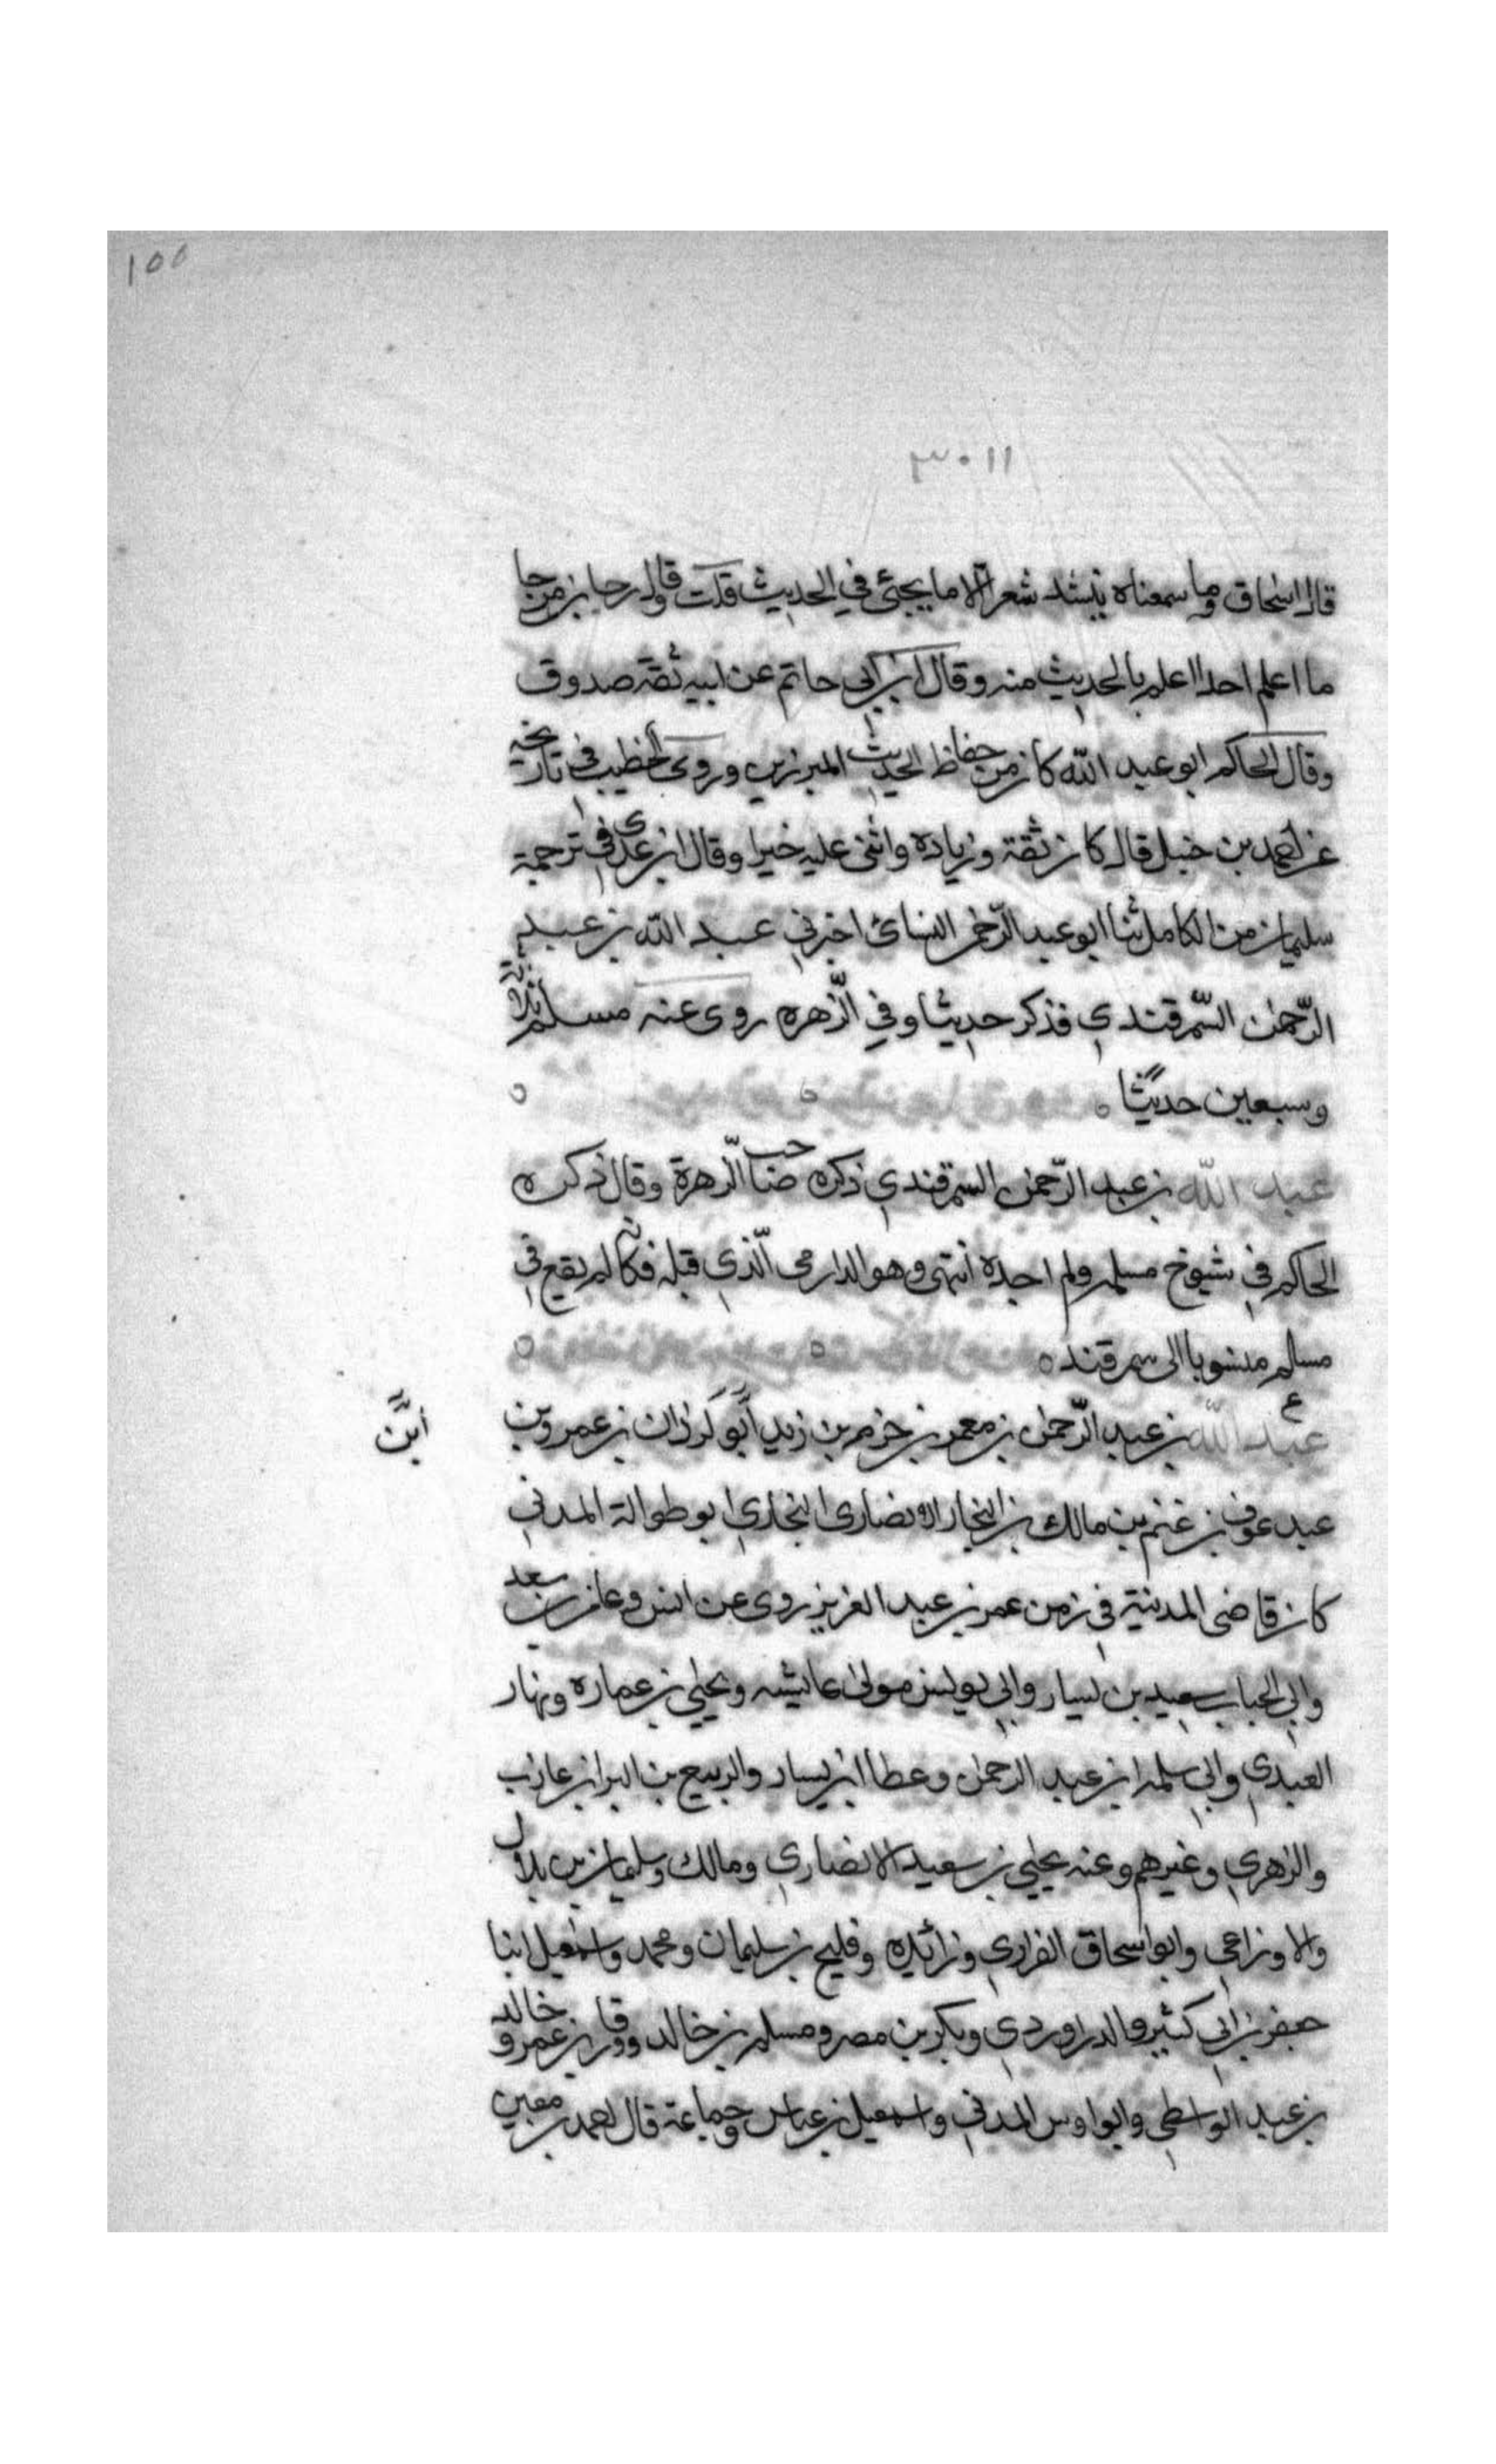 ١٥٥
٣٠١١
قال اسحاق وما سمعناه ينشد شعرا الا ما يجئ في الحديث قلت وقال رجا بن مرجا
ما اعلم احدا اعلم بالحديث منه وقال ابن ابي حاتم عن ابيه ثقة صدوق
وقال الحاكم ابو عبد الله كان من حفاظ الحديث المبرزين وروى الخطيب في تاريخه
عن احمد بن حنبل قال كان ثقة وزيادة واثنى عليه خيرا وقال ابن عدي في ترجمة
سليمان من الكامل ثنا ابو عبد الرحمن النسائ اخبرني عبد الله بن عبد
الرحمن السمرقندي فذكر حديثا وفي الزهره روى عنه مسلم ثلاثة
وسبعين حديثا ه
عبد الله بن عبد الرحمن السمرقندي ذكره صاحب الزهرة وقال ذكره
الحاكم في شيوخ مسلم ولم اجده انتهى وهو الدارمي الذي قبله فكانه لم يقع في
مسلم منسوبا الى سمرقند ه
ع
عبد الله بن عبد الرحمن بن معمر بن حزم بن زيد ابن لوذان بن عمرو بن
ابن
عبد عوف بن غنم بن مالك بن النجار الانصارى النجاري ابو طوالة المدني
كان قاضى المدينة في زمن عمر بن عبد العزيز روى عن انس وعامر بن سعد
وابي الحباب سعيد بن يسار وابي يونس مولى عايشه ويحيي بن عماره ونهار
العبدي وابي سلمه ابن عبد الرحمن وعطا ابن يسار والربيع بن البرا بن عازب
والزهري وغيرهم وعنه يحيي بن سعيد الانصاري ومالك وسليمان بن بلال
والاوزاعي وابو اسحاق الفزاري وزائيده وفليح بن سليمان ومحمد واسمعيل ابنا
جعفر بن ابي كثير والدراوردي وبكر بن مصر ومسلم بن خالد وورقا بن عمر وخالد
بن عبد الواسطي وابو اويس المدني واسمعيل بن عياس وجماعة قال احمد بن معين